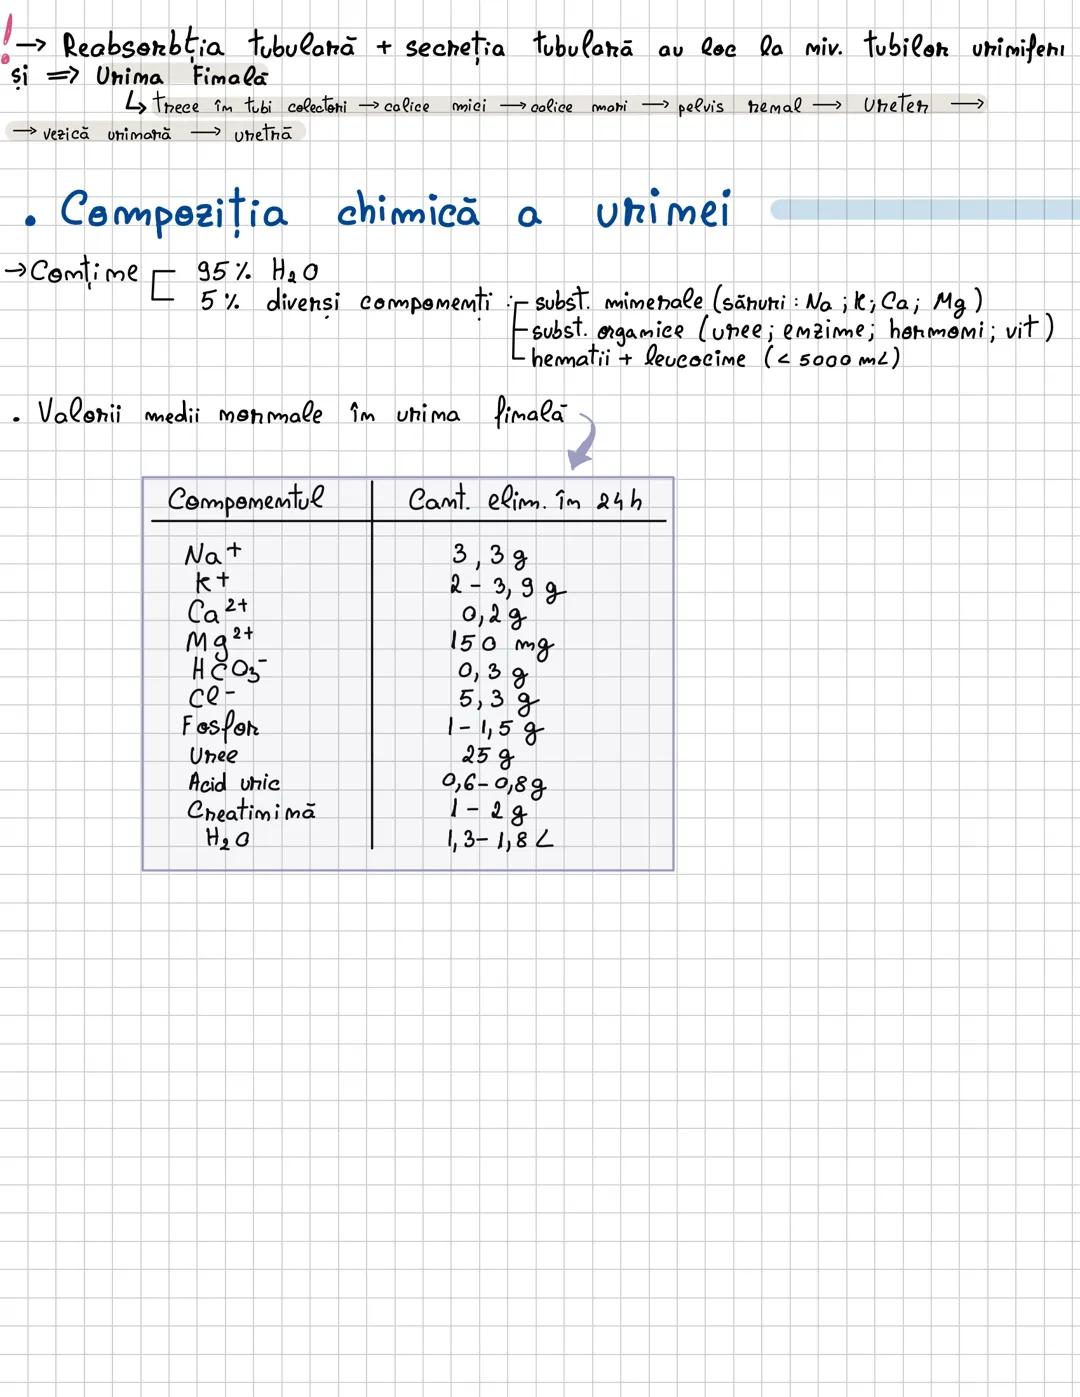 ! → Reabsorbția tubulară + secreția tubulară au loc la niv. tubilor uriniferi
și => Urina Finală
↳ trece în tubi colectori → calice mici → calice mari → pelvis renal → Ureter →
→ vezică urinară → uretră
• Compoziția chimică a urinei
→ Conține [ 95% H₂O
5% diverși componenți : subst. minerale (săruri : Na ; K; Ca; Mg)
subst. organice (uree; enzime; hormoni; vit)
hematii + leucocine (< 5000 mL)
• Valorii medii normale în urina finală
Componentul | Cant. elim. în 24h
Na+ 3,3 g
K+ 2 - 3,9 g
Ca 2+ 0,2 g
Mg 2+ 150 mg
HCO₃⁻ 0,3 g
Cl- 5,3 g
Fosfor 1 - 1,5 g
Uree 25 g
Acid uric 0,6 - 0,8 g
Creatinină 1 - 2 g
H₂O 1,3 - 1,8 L